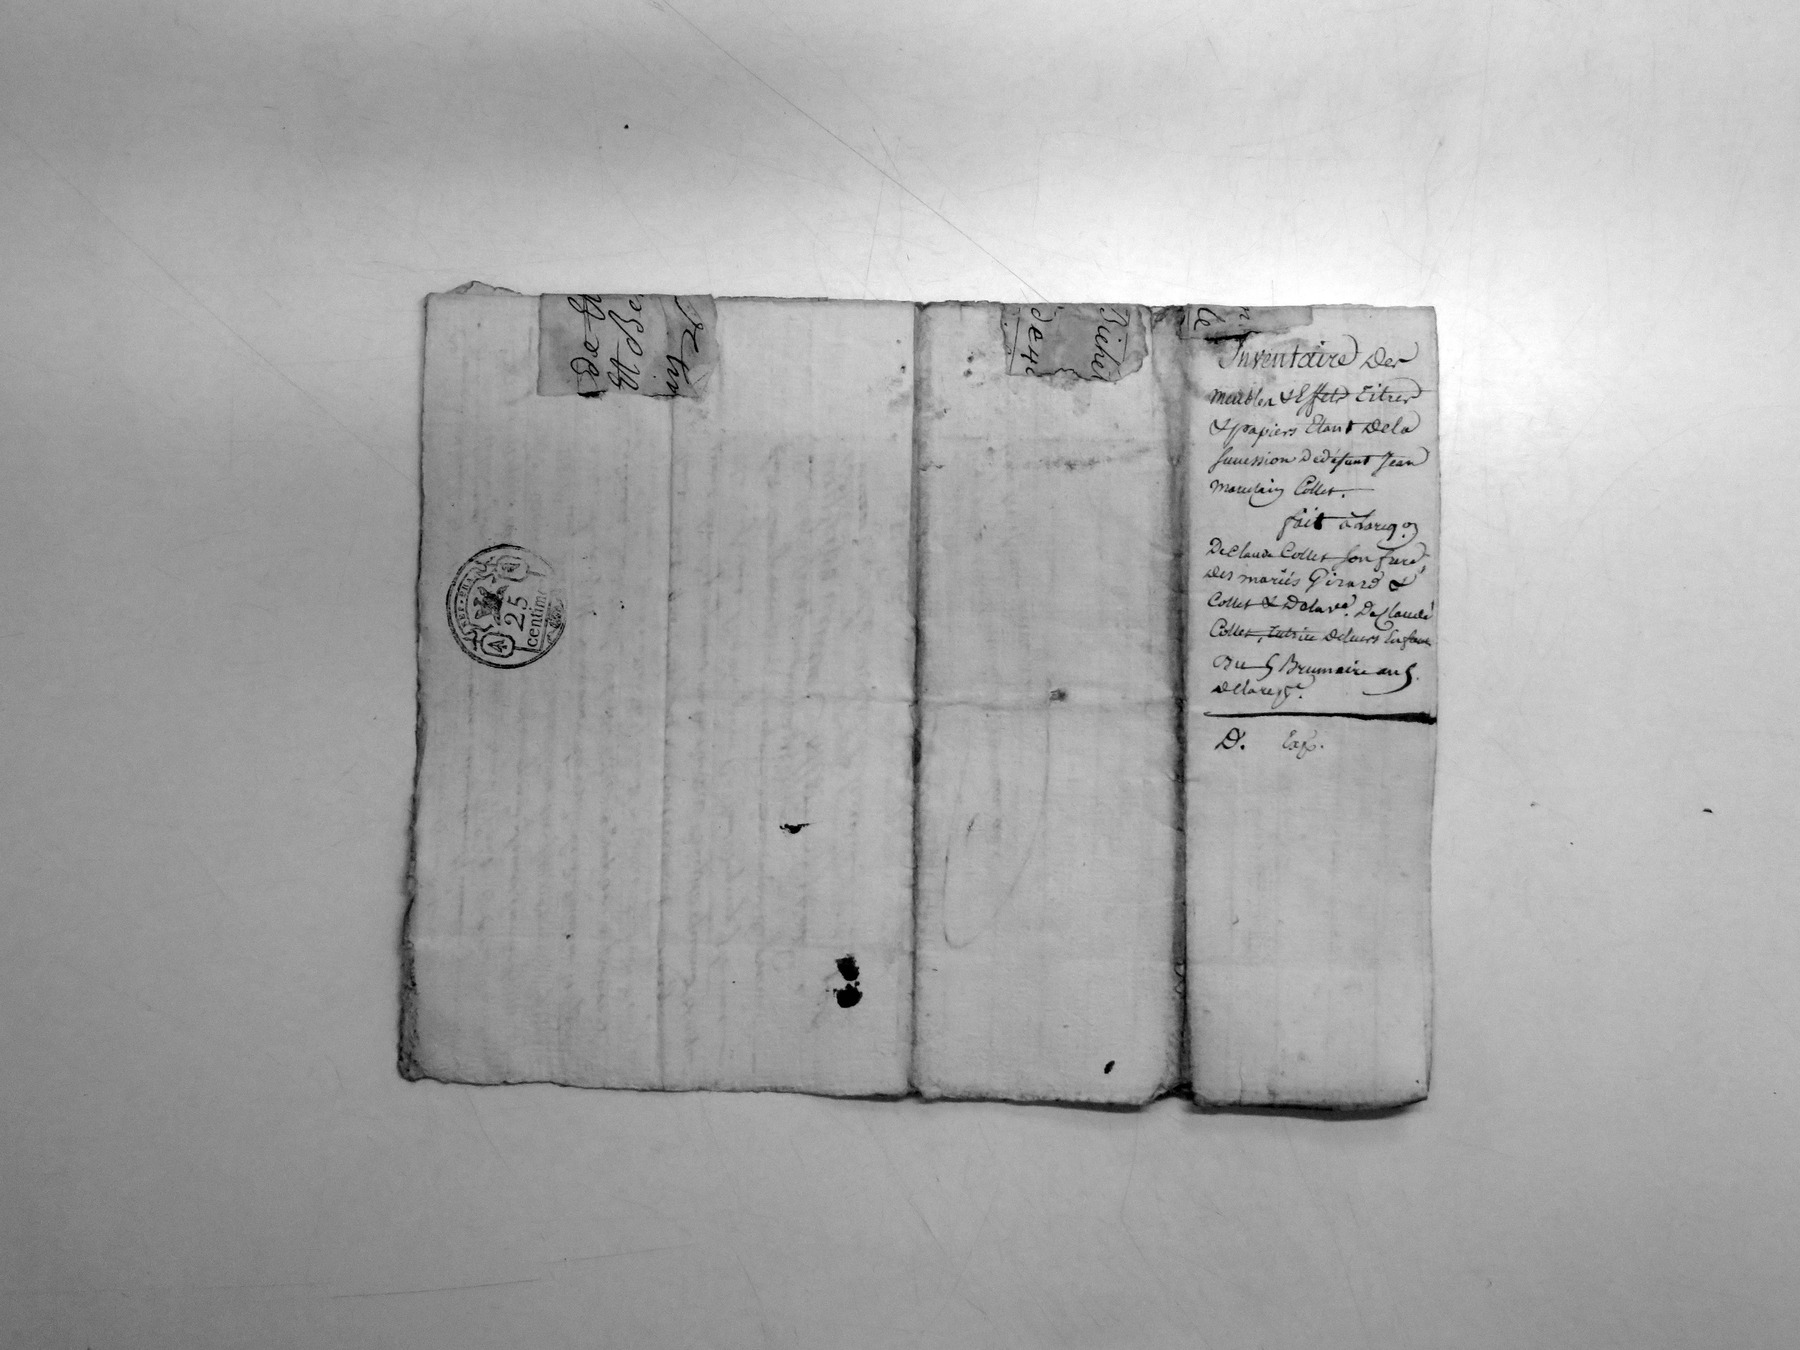 Inventaire Des
meubles & Effets titres
& papiers Etant Dela
Succession Dedéfunt Jean
Collet.
fait à Lareq.on
DeClaude Collet son frere,
Des mariés Girard &
Collet & Dela ve. DeClaude
Collet, tutrice Deleurs Enfans
Du 5 Brumaire an 5.
D. Exp.
25
centime
de
Et Be